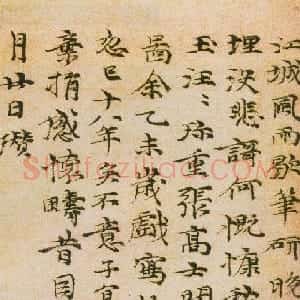 江城風雨歇筆研晚
埋没悲謌何慨慷秋
玉汪〻珎重張高士閒
啚余乙未歲戲寫
忽已十八年矣不意子宜
棄捐感懷疇昔因
月廿日瓚
Shufaziliao.com